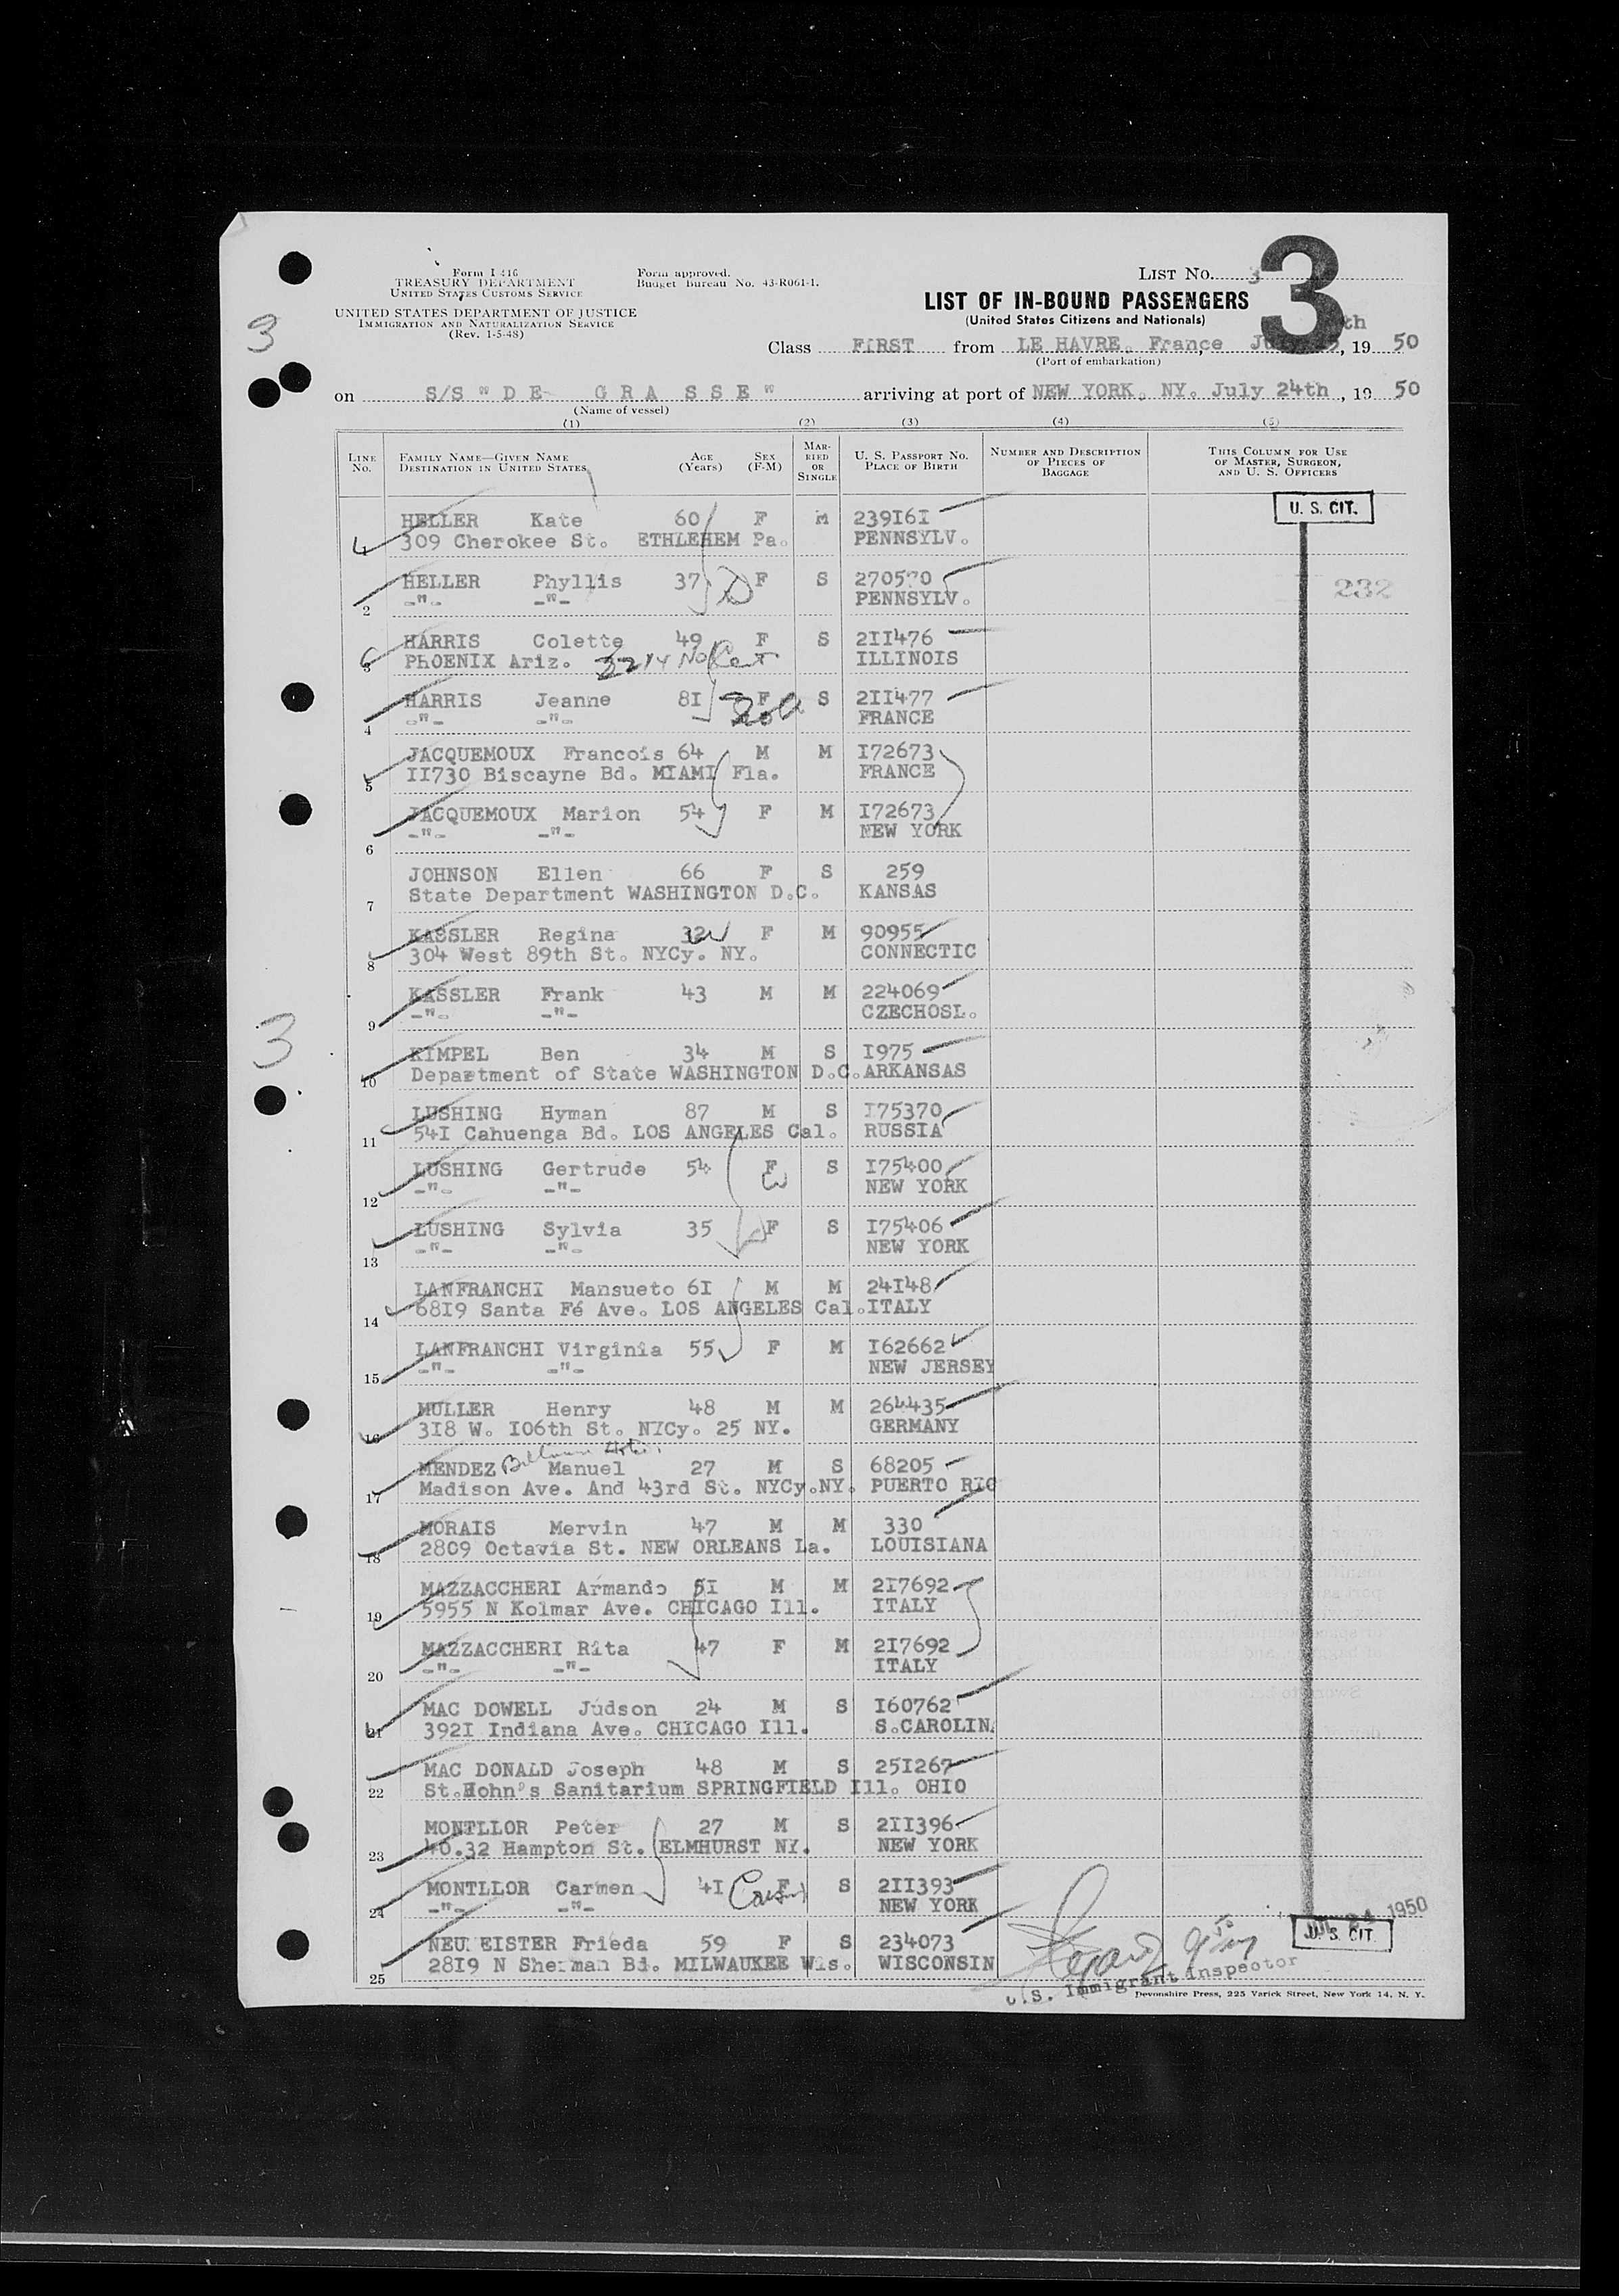 Form I 416
TREASURY DEPARTMENT
UNITED STATES CUSTOMS SERVICE
UNITED STATES DEPARTMENT OF JUSTICE
IMMIGRATION AND NATURALIZATION SERVICE
(Rev. 1-5-48)
Form approved.
Budget Bureau No. 43-R061-1.
LIST NO. 3
3
LIST OF IN-BOUND PASSENGERS
(United States Citizens and Nationals)
3
Class FIRST from LE HAVRE. France, July th, 19 50
(Port of embarkation)
on S/S "DE GRASSE" arriving at port of NEW YORK. NY. July 24th, 19 50
(Name of vessel)
(1) (2) (3) (4) (5)
LINE NO. FAMILY NAME—GIVEN NAME DESTINATION IN UNITED STATES AGE (YEARS) SEX (F-M) MARRIED OR SINGLE U. S. PASSPORT NO. PLACE OF BIRTH NUMBER AND DESCRIPTION OF PIECES OF BAGGAGE THIS COLUMN FOR USE OF MASTER, SURGEON, AND U. S. OFFICERS
U. S. CIT.
HELLER Kate 60 F M 239I6I
1 309 Cherokee St. ETHLEHEM Pa. PENNSYLV.
HELLER Phyllis 37 F S 270570
232
2 -"- -"- PENNSYLV.
HARRIS Colette 49 F S 2II476
3 PHOENIX Ariz. 3214 No ILLINOIS
HARRIS Jeanne 8I F S 2II477
4 -"- -"- FRANCE
JACQUEMOUX Francois 64 M M I72673
5 II730 Biscayne Bd. MIAMI Fla. FRANCE
JACQUEMOUX Marion 54 F M I72673
6 -"- -"- NEW YORK
JOHNSON Ellen 66 F S 259
7 State Department WASHINGTON D.C. KANSAS
KASSLER Regina 32 F M 90955
8 304 West 89th St. NYCy. NY. CONNECTIC
KASSLER Frank 43 M M 224069
9 -"- -"- CZECHOSL.
3
KIMPEL Ben 34 M S I975
10 Department of State WASHINGTON D.C. ARKANSAS
LUSHING Hyman 87 M S I75370
11 54I Cahuenga Bd. LOS ANGELES Cal. RUSSIA
LUSHING Gertrude 54 F S I75400
12 -"- -"- NEW YORK
LUSHING Sylvia 35 F S I75406
13 -"- -"- NEW YORK
LANFRANCHI Mansueto 6I M M 24I48
14 68I9 Santa Fé Ave. LOS ANGELES Cal. ITALY
LANFRANCHI Virginia 55 F M I62662
15 -"- -"- NEW JERSEY
MULLER Henry 48 M M 264435
16 3I8 W. I06th St. NYCy. 25 NY. GERMANY
MENDEZ Manuel 27 M S 68205
17 Madison Ave. And 43rd St. NYCy.NY. PUERTO RIC
MORAIS Mervin 47 M M 330
18 2809 Octavia St. NEW ORLEANS La. LOUISIANA
MAZZACCHERI Armando 5I M M 2I7692
19 5955 N Kolmar Ave. CHICAGO Ill. ITALY
MAZZACCHERI Rita 47 F M 2I7692
20 -"- -"- ITALY
MAC DOWELL Judson 24 M S I60762
21 392I Indiana Ave. CHICAGO Ill. S.CAROLIN.
MAC DONALD Joseph 48 M S 25I267
22 St.Hohn's Sanitarium SPRINGFIELD Ill. OHIO
MONTLLOR Peter 27 M S 2II396
23 40.32 Hampton St. ELMHURST NY. NEW YORK
MONTLLOR Carmen 4I F S 2II393
24 -"- -"- NEW YORK
JUL 24 1950
U. S. CIT.
NEU EISTER Frieda 59 F S 234073
25 28I9 N Sherman Bd. MILWAUKEE Wis. WISCONSIN
U.S. Immigrant Inspector
Devonshire Press, 225 Varick Street, New York 14, N. Y.